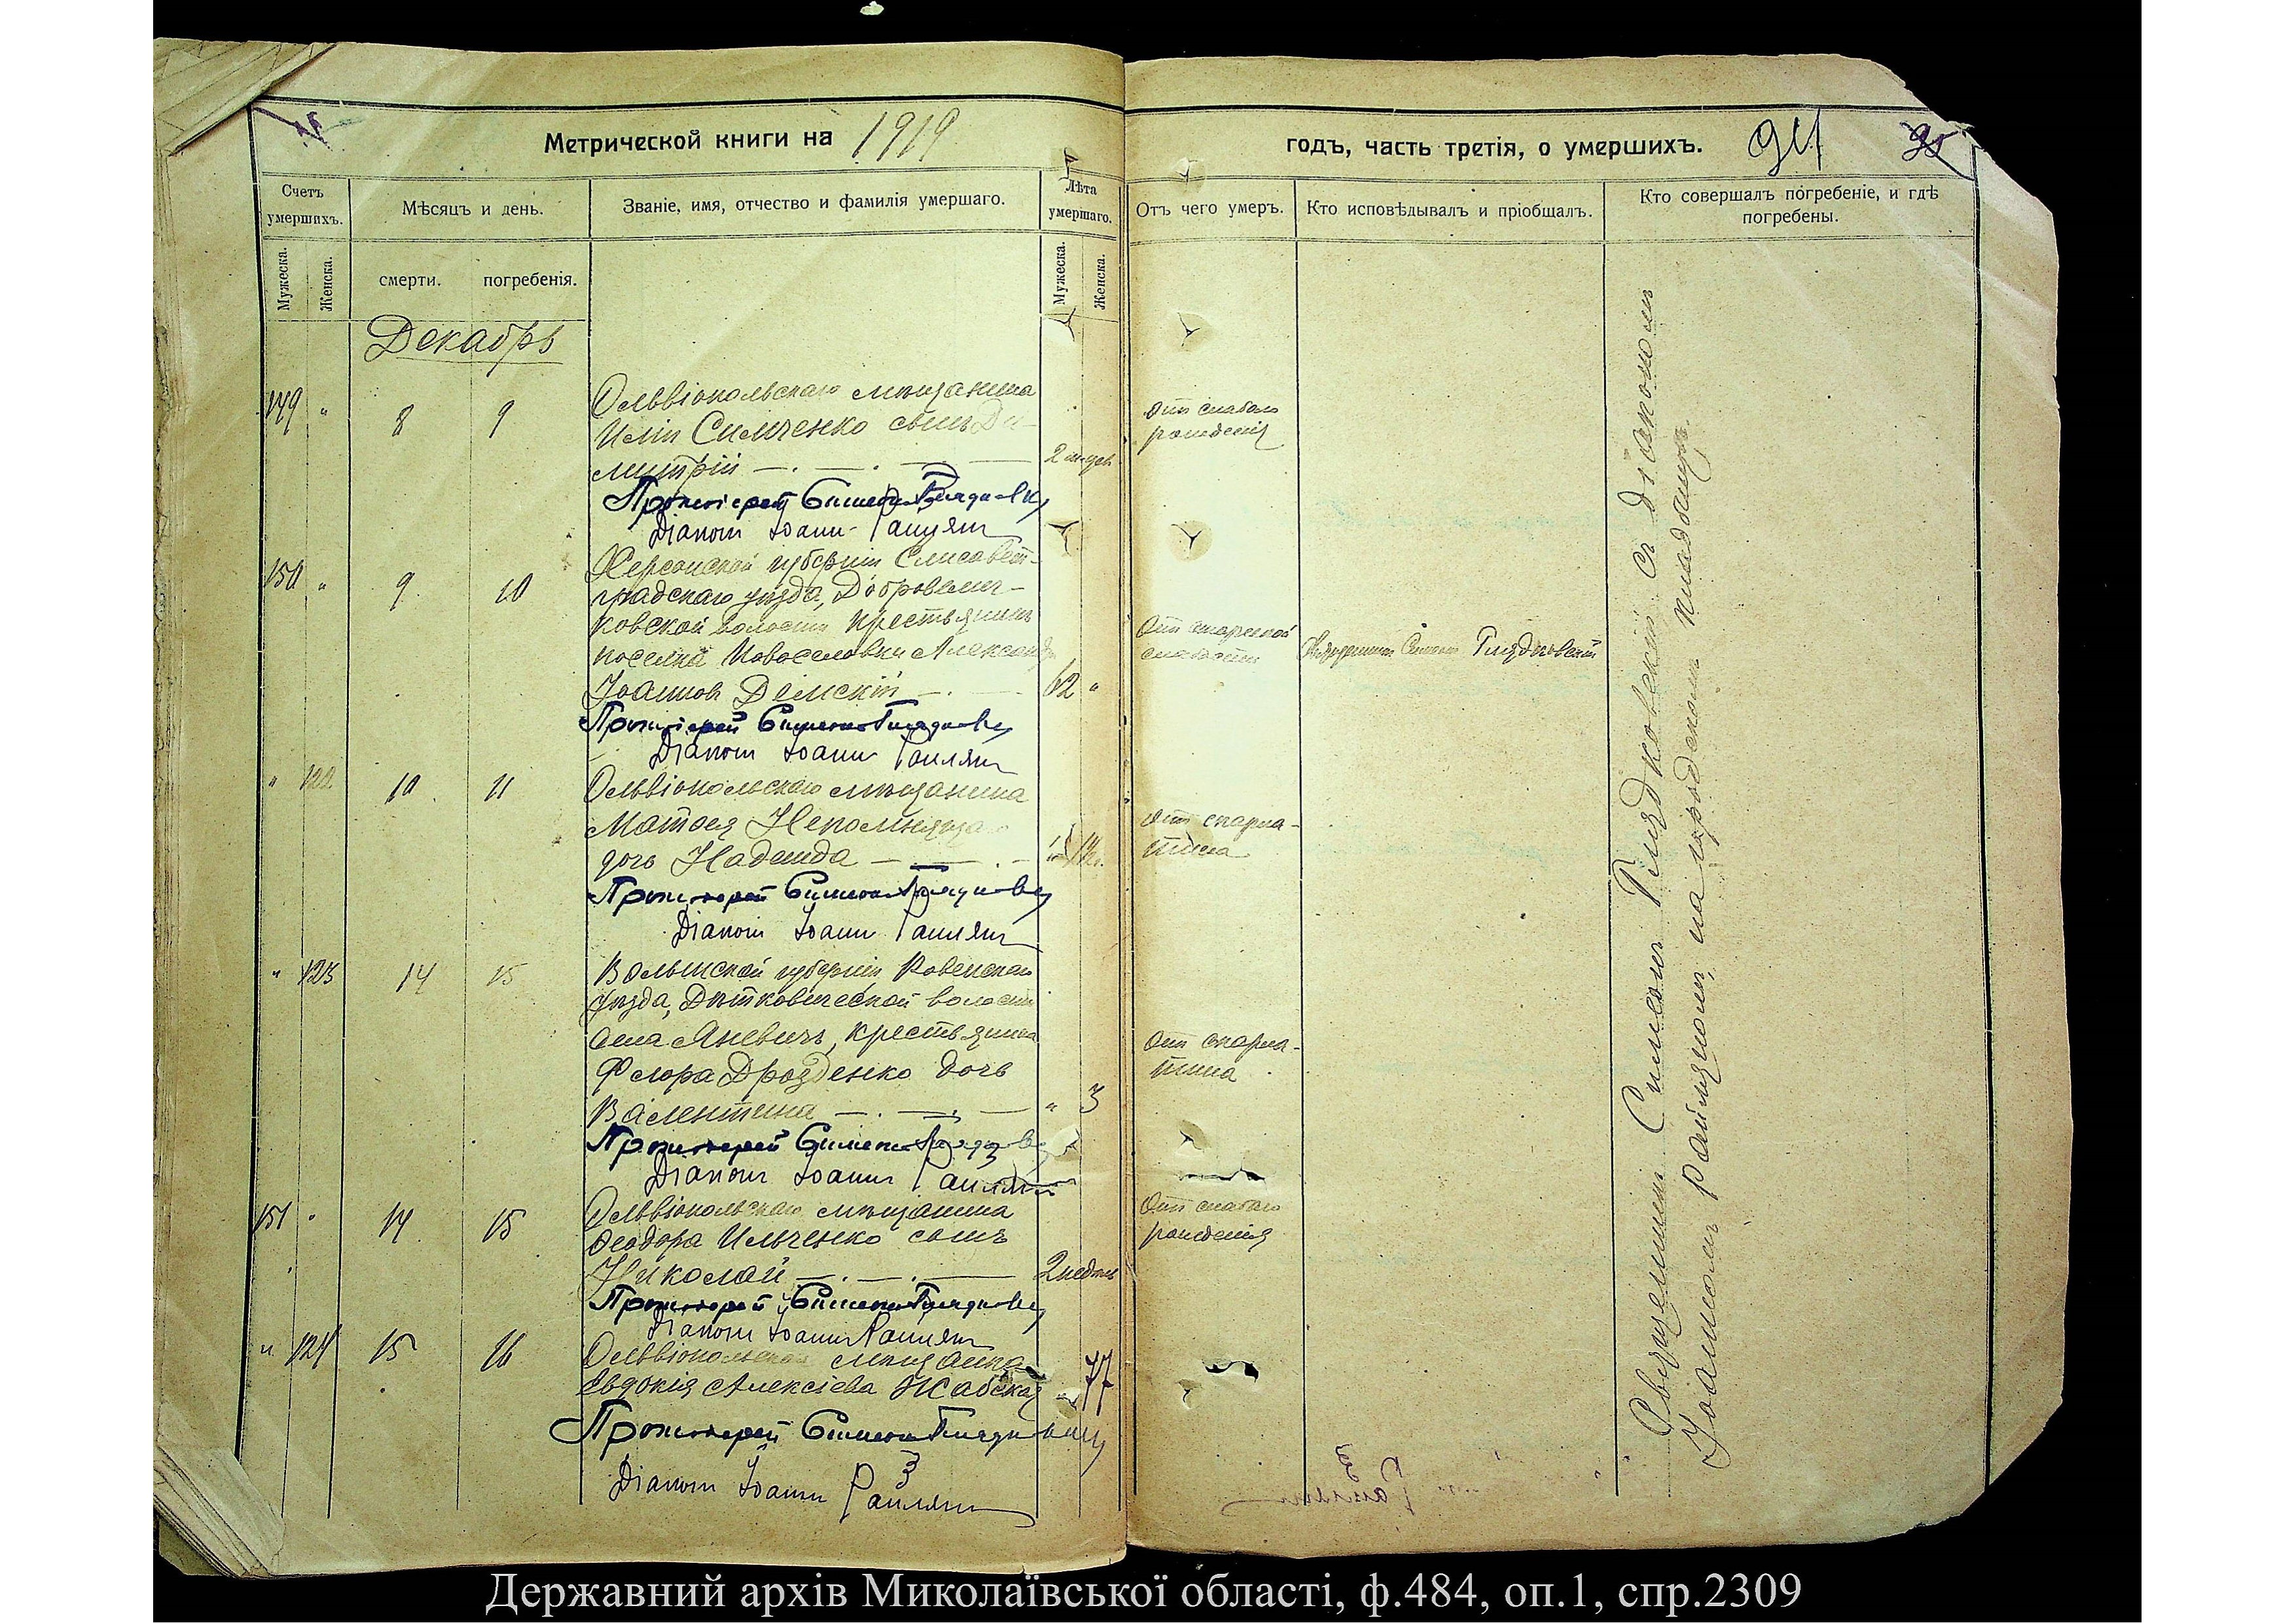 Метрической книги на 1919
годъ, часть третія, о умершихъ. 94
Счетъ умершихъ.
Мѣсяцъ и день.
Званіе, имя, отчество и фамилія умершаго.
Лѣта умершаго.
Отъ чего умеръ.
Кто исповѣдывалъ и пріобщалъ.
Кто совершалъ погребеніе, и гдѣ
погребены.
Мужеска.
Женска.
смерти.
погребенія.
Мужеска.
Женска.
Декабрь
149 " 8 9 Ольвіопольскаго мѣщанина
Иліи Симченко сынъ Ди-
митрій 2
Отъ слабаго
рожденія
Протоіерей Симеонъ
Діаконъ Іоаннъ
150 " 9 10 Херсонской губерніи Елисавет-
градскаго уѣзда, Добровелич-
ковской волости крестьянинъ
поселка Новоселовки Александръ
Іоанновъ Демскій 62 "
Отъ старческой
слабости
Симеонъ Гляднковскій
Протоіерей Симеонъ
Діаконъ Іоаннъ
" 122 10 11 Ольвіопольскаго мѣщанина
Матѳея
дочь Надежда
Отъ скарла-
тина
Протоіерей Симеонъ
Діаконъ Іоаннъ
" 123 14 15 Волынской губерніи Ровенскаго
уѣзда, Дятковической волости
села Яневичъ, крестьянина
Флора Дрозденко дочь
Валентина " 3
Отъ скарла-
тина
Протоіерей Симеонъ
Діаконъ Іоаннъ
151 " 14 15 Ольвіопольскаго мѣщанина
Ѳеодора Ильченко сынъ
Николай 2 недѣль
Отъ слабаго
рожденія
Протоіерей Симеонъ
Діаконъ Іоаннъ
" 124 15 16 Ольвіопольская мѣщанка
Евдокія Алексіева Жабская " 77
Протоіерей Симеонъ
Діаконъ Іоаннъ
Священникъ Симеонъ съ діакономъ
Іоанномъ на городскомъ кладбищѣ.
Державний архів Миколаївської області, ф.484, оп.1, спр.2309